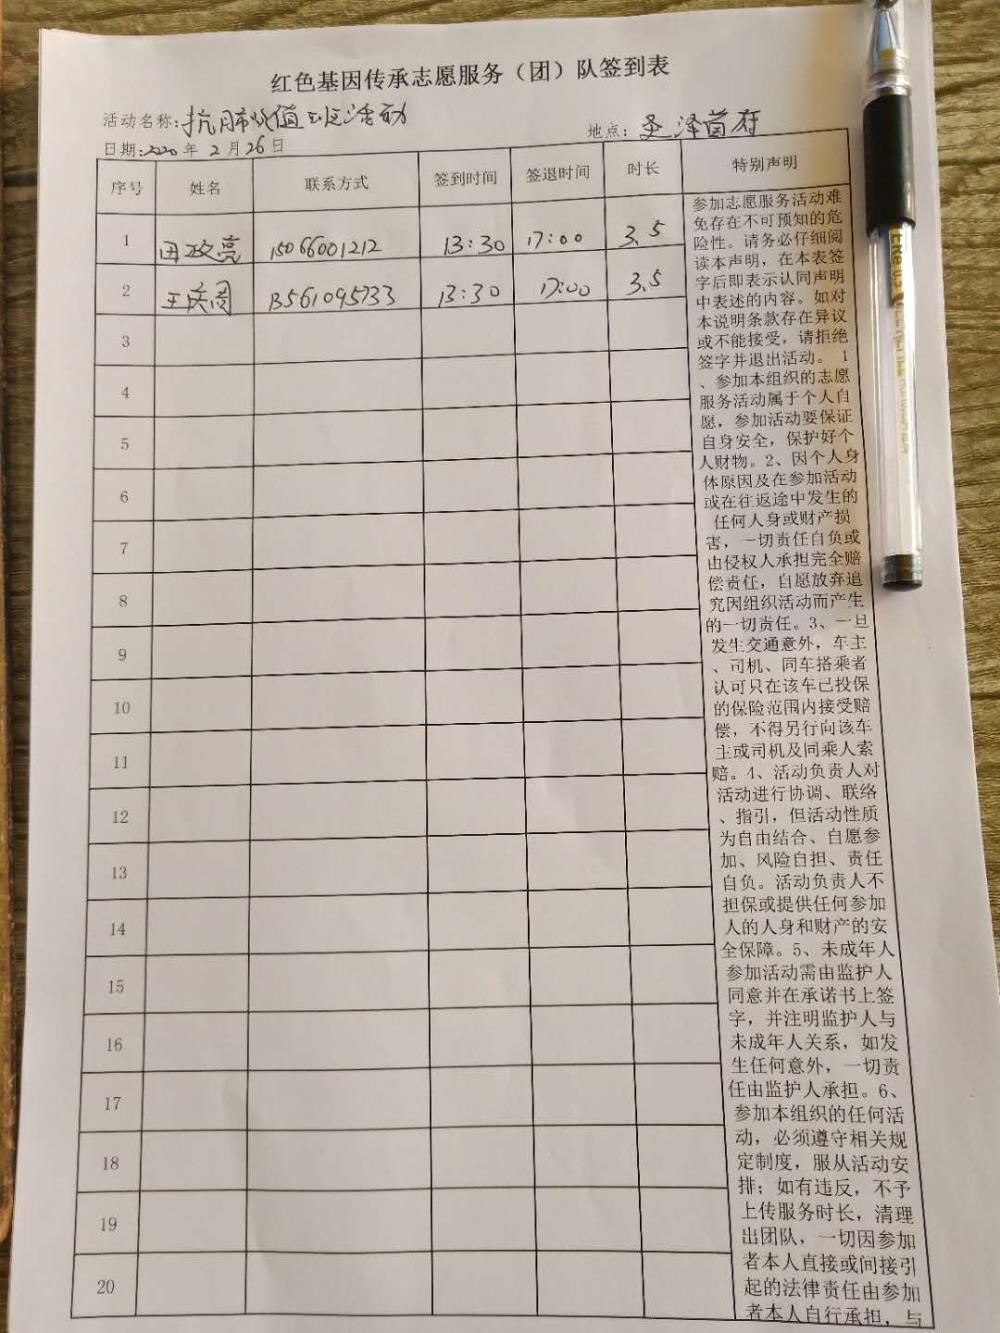 红色基因传承志愿服务（团）队签到表
活动名称:抗肺炎值班活动
地点：圣泽茵府
日期:2020年2月26日
序号 姓名 联系方式 签到时间 签退时间 时长 特别声明
1 田政亮 15066001212 13:30 17:00 3.5
2 王庆周 13561095733 13:30 17:00 3.5
3
4
5
6
7
8
9
10
11
12
13
14
15
16
17
18
19
20
参加志愿服务活动难
免存在不可预知的危
险性。请务必仔细阅
读本声明，在本表签
字后即表示认同声明
中表述的内容。如对
本说明条款存在异议
或不能接受，请拒绝
签字并退出活动。 1
、参加本组织的志愿
服务活动属于个人自
愿，参加活动要保证
自身安全，保护好个
人财物。2、因个人身
体原因及在参加活动
或在往返途中发生的
任何人身或财产损
害，一切责任自负或
由侵权人承担完全赔
偿责任，自愿放弃追
究因组织活动而产生
的一切责任。3、一旦
发生交通意外，车主
、司机、同车搭乘者
认可只在该车已投保
的保险范围内接受赔
偿，不得另行向该车
主或司机及同乘人索
赔。4、活动负责人对
活动进行协调、联络
、指引，但活动性质
为自由结合、自愿参
加、风险自担、责任
自负。活动负责人不
担保或提供任何参加
人的人身和财产的安
全保障。5、未成年人
参加活动需由监护人
同意并在承诺书上签
字，并注明监护人与
未成年人关系，如发
生任何意外，一切责
任由监护人承担。6、
参加本组织的任何活
动，必须遵守相关规
定制度，服从活动安
排；如有违反，不予
上传服务时长，清理
出团队，一切因参加
者本人直接或间接引
起的法律责任由参加
者本人自行承担，与